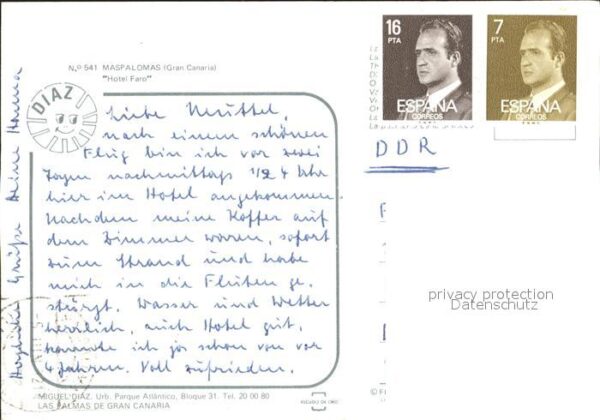 N.º 541 MASPALOMAS (Gran Canaria)
"Hotel Faro"
DIAZ
Liebe Muttel,
nach einem schönen
Flug bin ich vor zwei
Tagen nachmittags 1/2 4 Uhr
hier im Hotel angekommen.
Nachdem meine Koffer auf
dem Zimmer waren, sofort
zum Strand und habe
mich in die Fluten ge-
stürzt. Wasser und Wetter
herrlich, auch Hotel gut,
kannte ich ja schon von vor
4 Jahren. Voll zufrieden.
Herzliche Grüße Deine Hanna
MIGUEL DIAZ. Urb. Parque Atlántico, Bloque 31. Tel. 20 00 80
LAS PALMAS DE GRAN CANARIA
16
PTA
ESPAÑA
CORREOS
7
PTA
ESPAÑA
CORREOS
DDR
privacy protection
Datenschutz